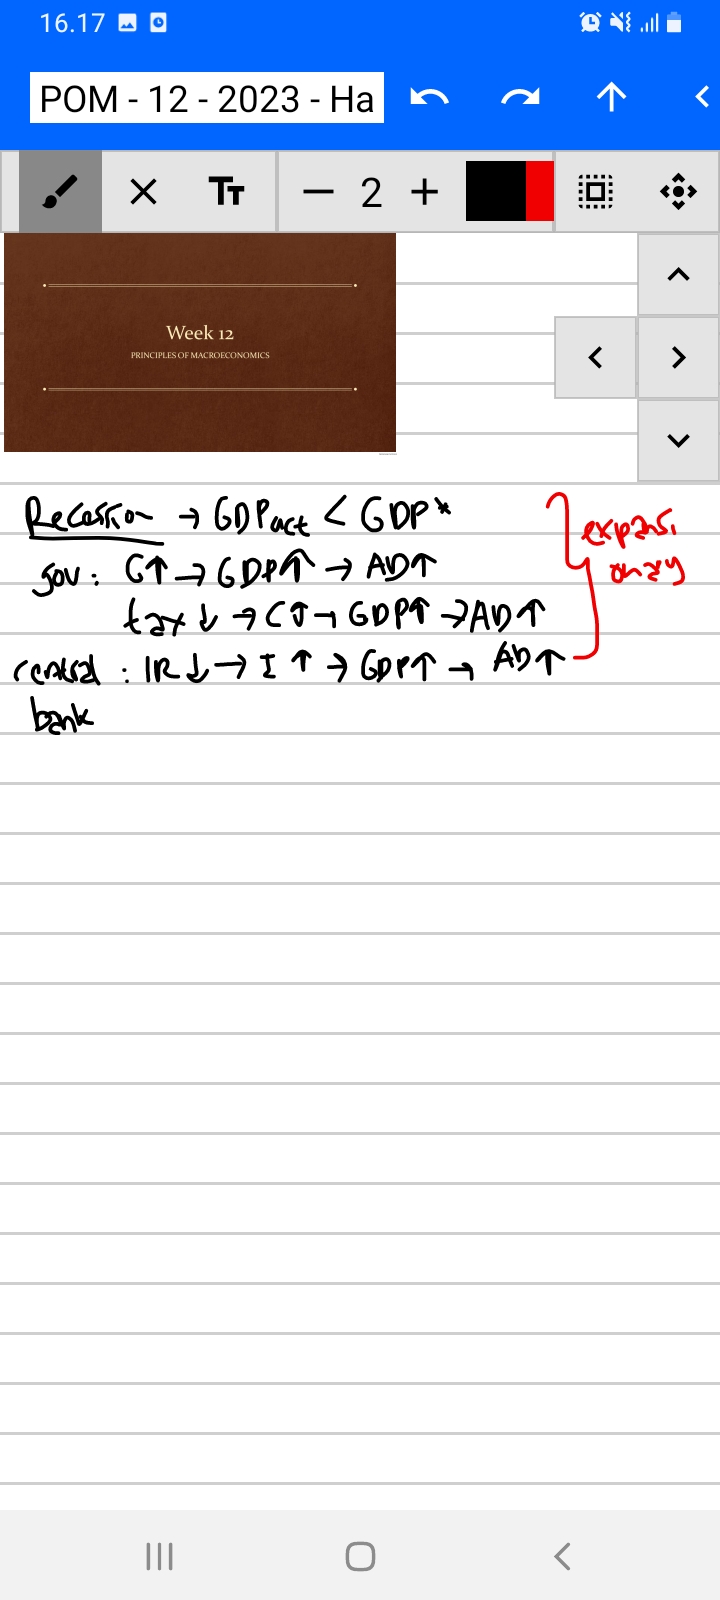 16.17
POM - 12 - 2023 - Ha
2
Week 12
PRINCIPLES OF MACROECONOMICS
Recession → GDPact < GDP*
gov : G↑ → GDP↑ → AD↑
tax ↓ → C↑ → GDP↑ → AD↑
central : IR ↓ → I ↑ → GDP↑ → AD↑
bank
expansi
onary